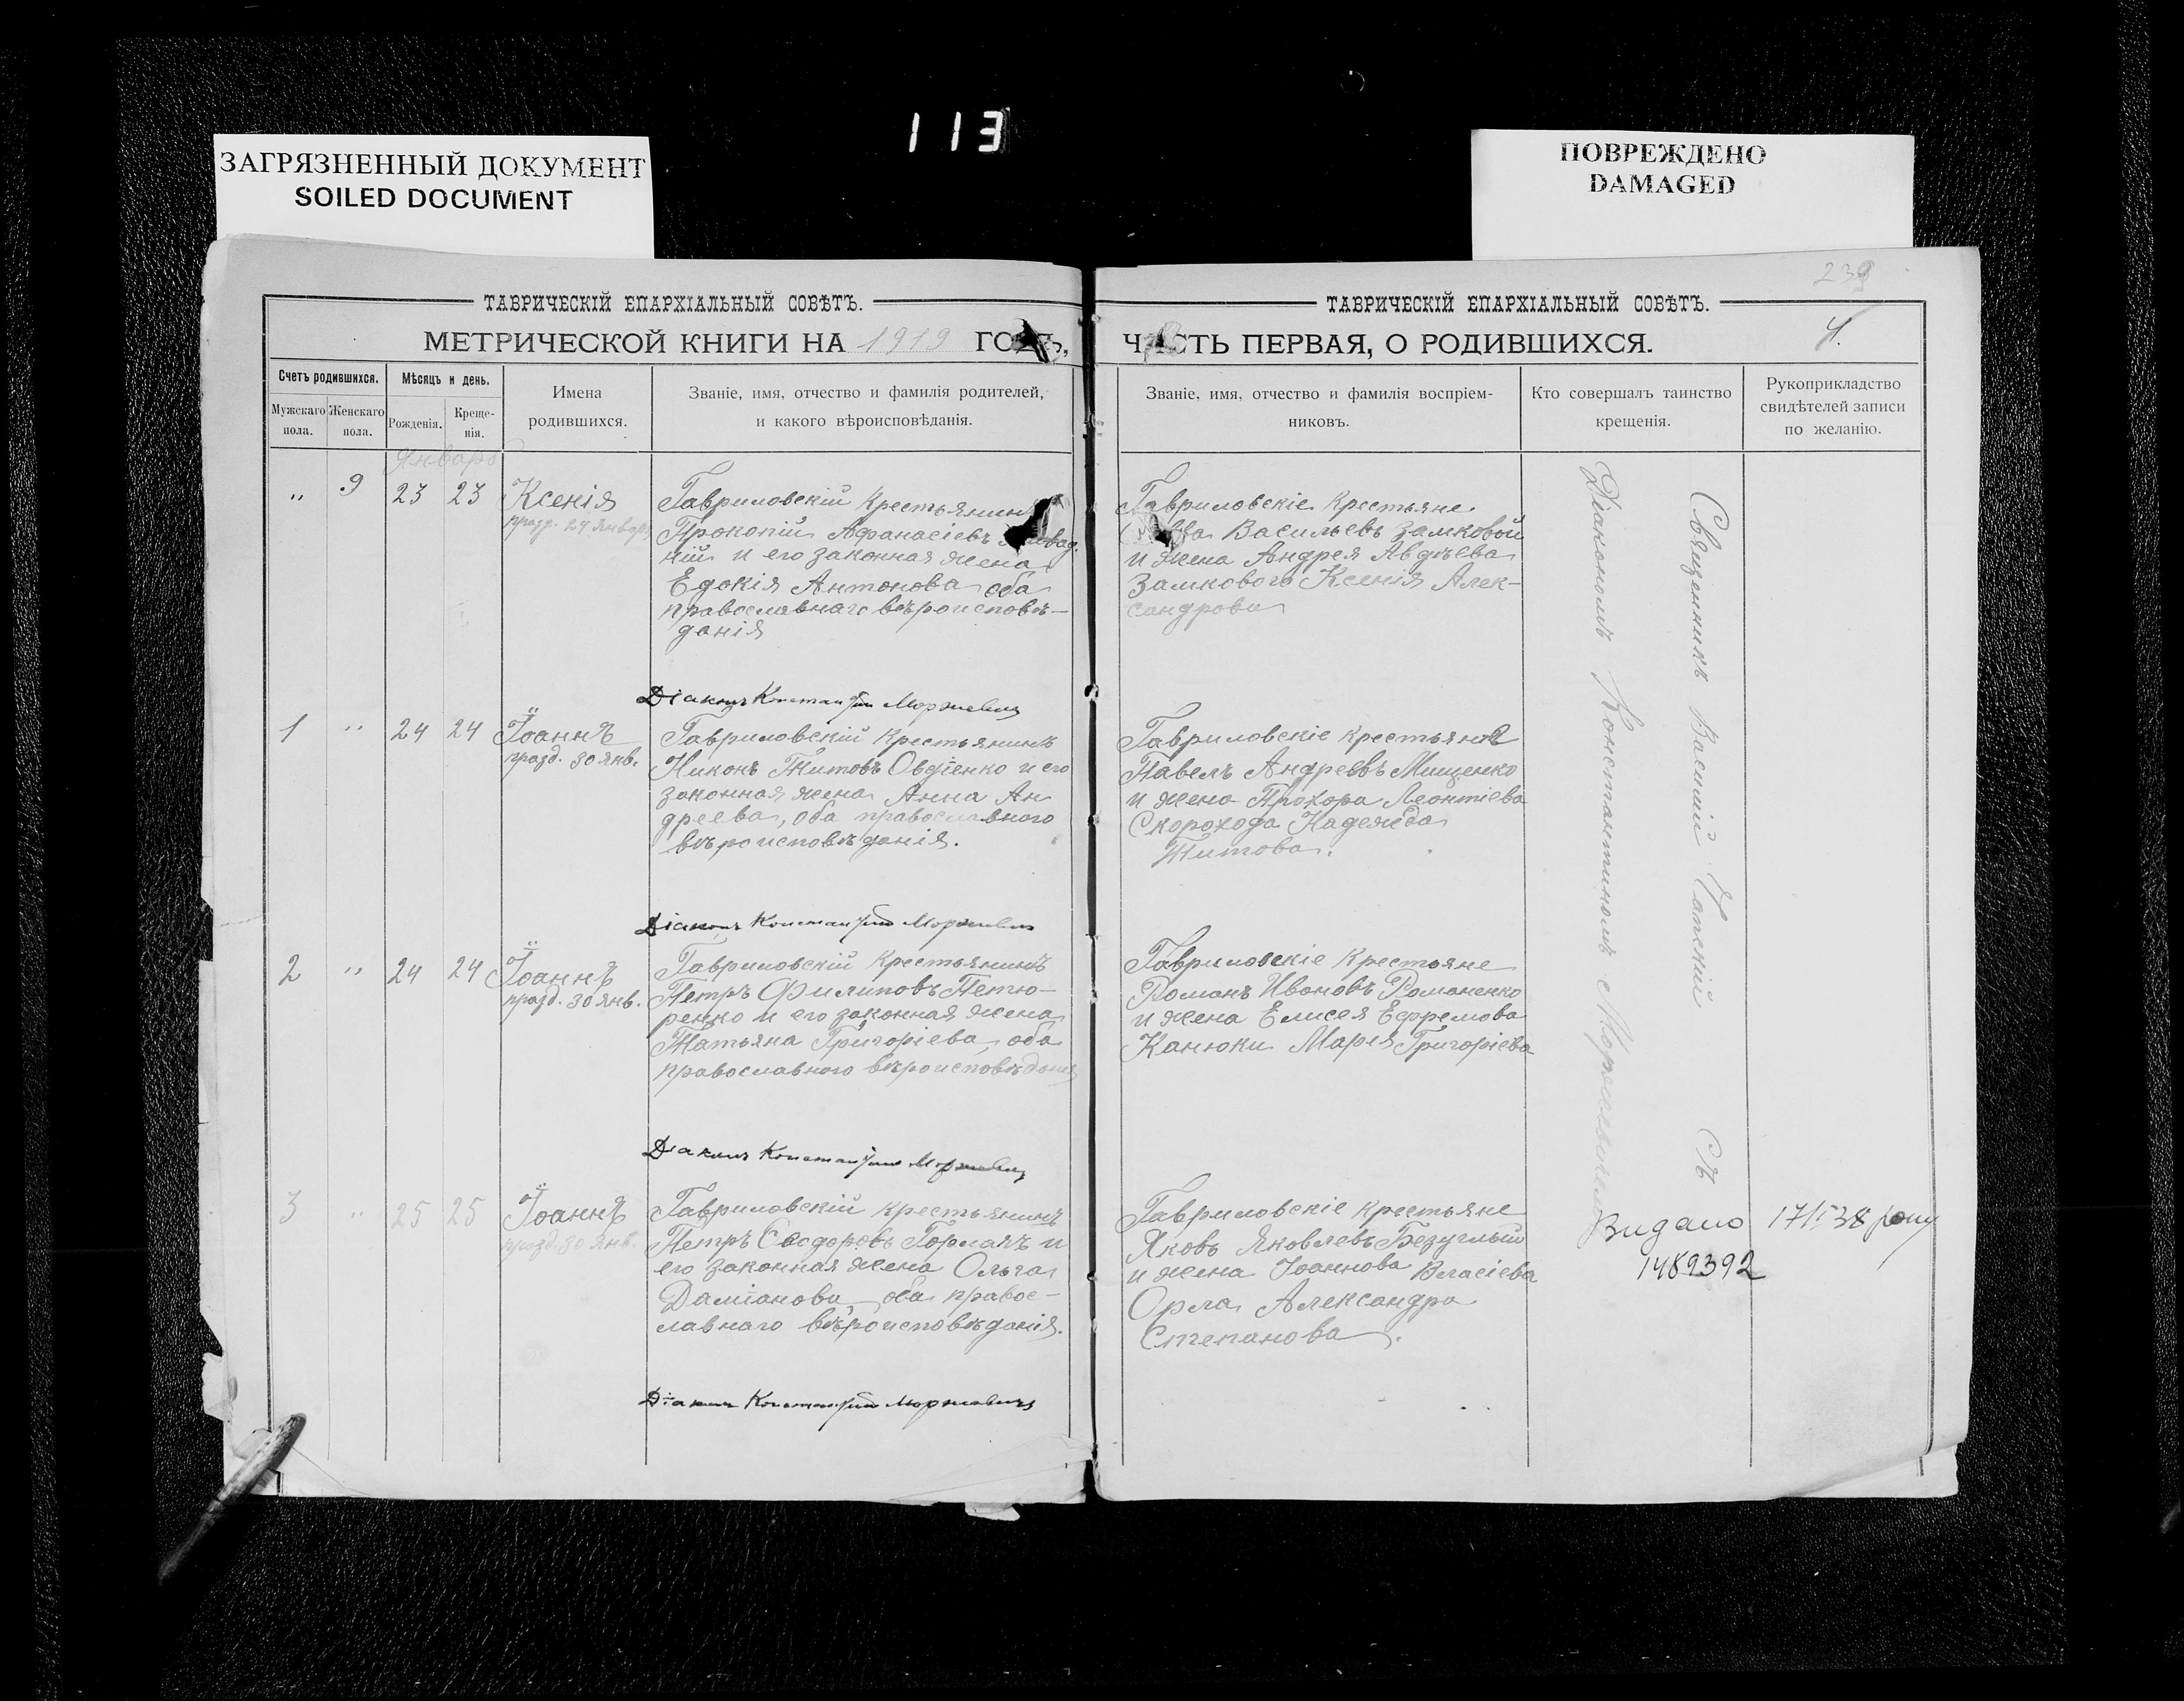 113
ЗАГРЯЗНЕННЫЙ ДОКУМЕНТ
SOILED DOCUMENT
ПОВРЕЖДЕНО
DAMAGED
239
ТАВРИЧЕСКІЙ ЕПАРХІАЛЬНЫЙ СОВѢТЪ.
МЕТРИЧЕСКОЙ КНИГИ НА 1919 ГОДЪ,
Счетъ родившихся.
Мужскаго пола.
Женскаго пола.
Мѣсяцъ и день.
Рожденія.
Креще-
нія.
Имена
родившихся.
Званіе, имя, отчество и фамилія родителей,
и какого вѣроисповѣданія.
Января
" 9 23 23 Ксенія
празд. 24 Января
Гавриловскій крестьянин
Прокопій Афанасіевъ
ній и его законная жена
Едокія Антонова оба
православнаго вѣроисповѣ-
данія
Діаконъ Константинъ Моржевичъ
1 " 24 24 Іоаннъ
празд. 30 янв.
Гавриловскій крестьянинъ
Никонъ Титовъ Овдіенко и его
законная жена Анна Ан
дреева, оба православного
вѣроисповѣданія.
Діаконъ Константинъ Моржевичъ
2 " 24 24 Іоаннъ
празд. 30 янв.
Гавриловскій крестьянинъ
Петръ Филиповъ Петю-
ренко и его законная жена
Татьяна Григоріева, оба
православного вѣроисповѣданія
Діаконъ Константинъ Моржевичъ
3 " 25 25 Іоаннъ
празд. 30 Янв.
Гавриловскій крестьянинъ
Петръ Ѳеодоровъ Горлачъ и
его законная жена Ольга
Даміанова, оба правос-
лавнаго вѣроисповѣданія.
Діаконъ Константинъ Моржевичъ
ТАВРИЧЕСКІЙ ЕПАРХІАЛЬНЫЙ СОВѢТЪ.
ЧАСТЬ ПЕРВАЯ, О РОДИВШИХСЯ.
4.
Званіе, имя, отчество и фамилія воспріем-
никовъ.
Кто совершалъ таинство
крещенія.
Рукоприкладство
свидѣтелей записи
по желанію.
Гавриловскіе крестьяне
Васильевъ Замковой
и жена Андрея Авдѣева
Замкового Ксенія Алек-
сандрова
Гавриловскіе крестьяне
Павелъ Андреевъ Мищенко
и жена Прохора Леонтіева
Скорохода Надежда
Титова.
Гавриловскіе крестьяне
Романъ Ивановъ Романенко
и жена Елисея Ефремова
Канюки Марія Григоріева
Гавриловскіе крестьяне
Яковъ Яковлевъ Безуглый
и жена Іоаннова Власіева
Орла Александра
Степанова.
Священникъ Василій съ
Діакономъ Константиномъ Моржевичемъ
Видано 17/I 38 року
1489392